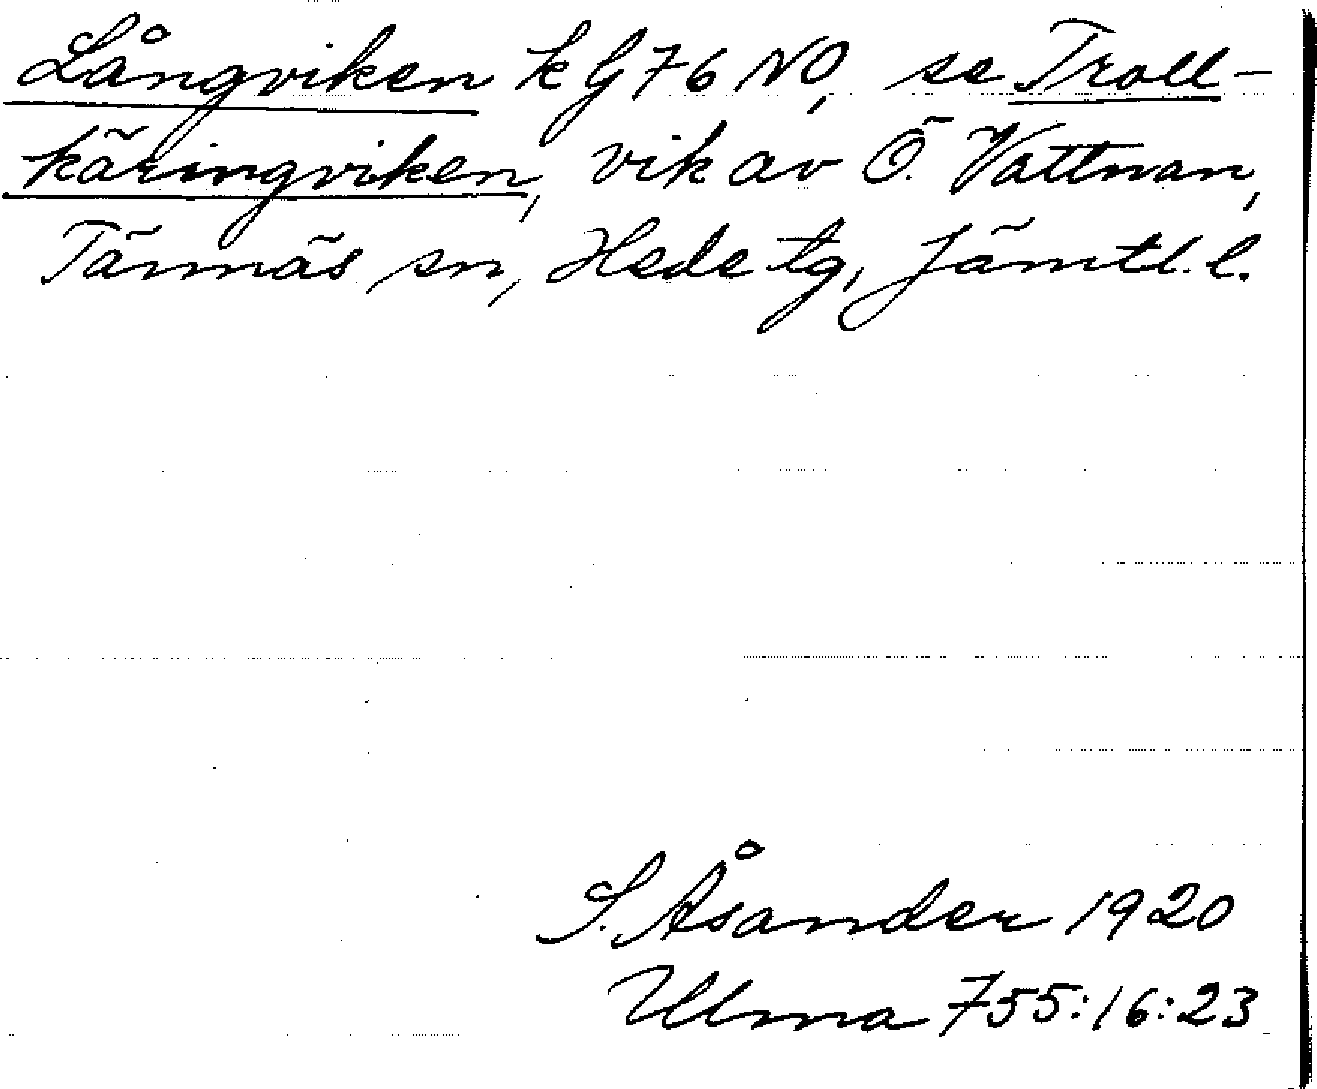 Långviken k G 76 NO, se Troll-
käringviken, vik av Ö. Vattnan,
Tännäs sn, Hede tg, Jämtl. l.
S. Åsander 1920
Ulma 755:16:23